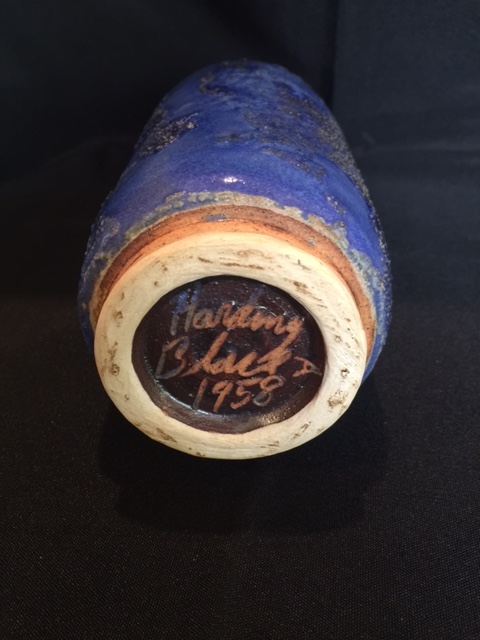 Harding
Black
1958